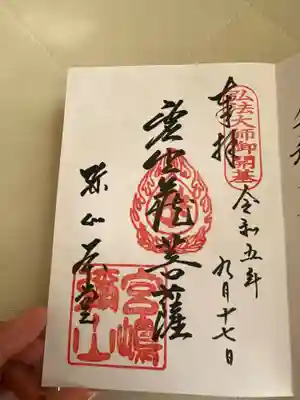 弘法大師御開基
奉拝
令和五年
九月十七日
虚空蔵菩薩
弥山本堂
宮嶋
弥山